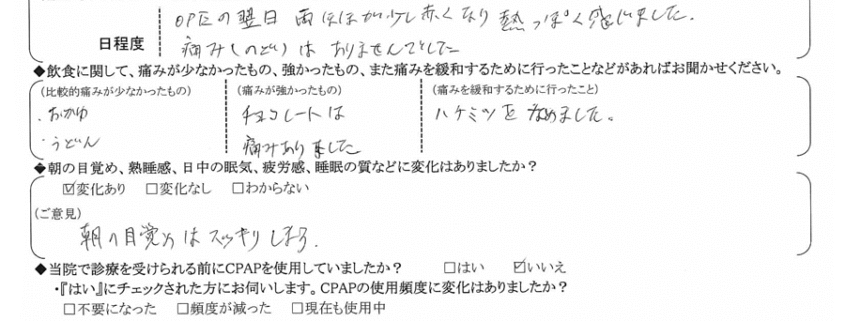 OP区の翌日 両ほほが少し赤くなり熱っぽく感じました。
日程度 痛み(のど)はありませんでした
◆飲食に関して、痛みが少なかったもの、強かったもの、また痛みを緩和するために行ったことなどがあればお聞かせください。
(比較的痛みが少なかったもの) (痛みが強かったもの) (痛みを緩和するために行ったこと)
・おかゆ チョコレートは ハチミツをなめました。
・うどん 痛みありました
◆朝の目覚め、熟睡感、日中の眠気、疲労感、睡眠の質などに変化はありましたか?
☑変化あり □変化なし □わからない
(ご意見)
朝の目覚めはスッキリします。
◆当院で診療を受けられる前にCPAPを使用していましたか? □はい ☑いいえ
・『はい』にチェックされた方にお伺いします。CPAPの使用頻度に変化はありましたか?
□不要になった □頻度が減った □現在も使用中